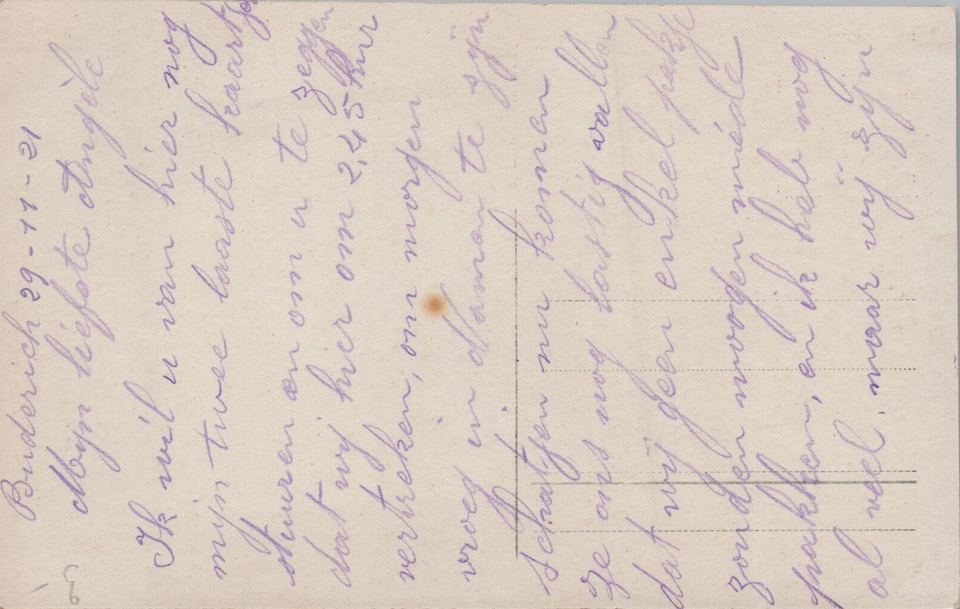 Buderich 29-11-21
Mijn liefste Angèle
Ik wil u van hier nog
mijn twee laaste kaartje
sturen en om u te zeggen
dat wij hier om 2,45 uur
vertreken, om morgen
vroeg in Namen te zijn
schatjen nu komen
ze ons nog lastig vallen
dat wij geen enkel pakje
zouden mogen méde
pakken, en ik heb nog
al veel, maar wij zijn